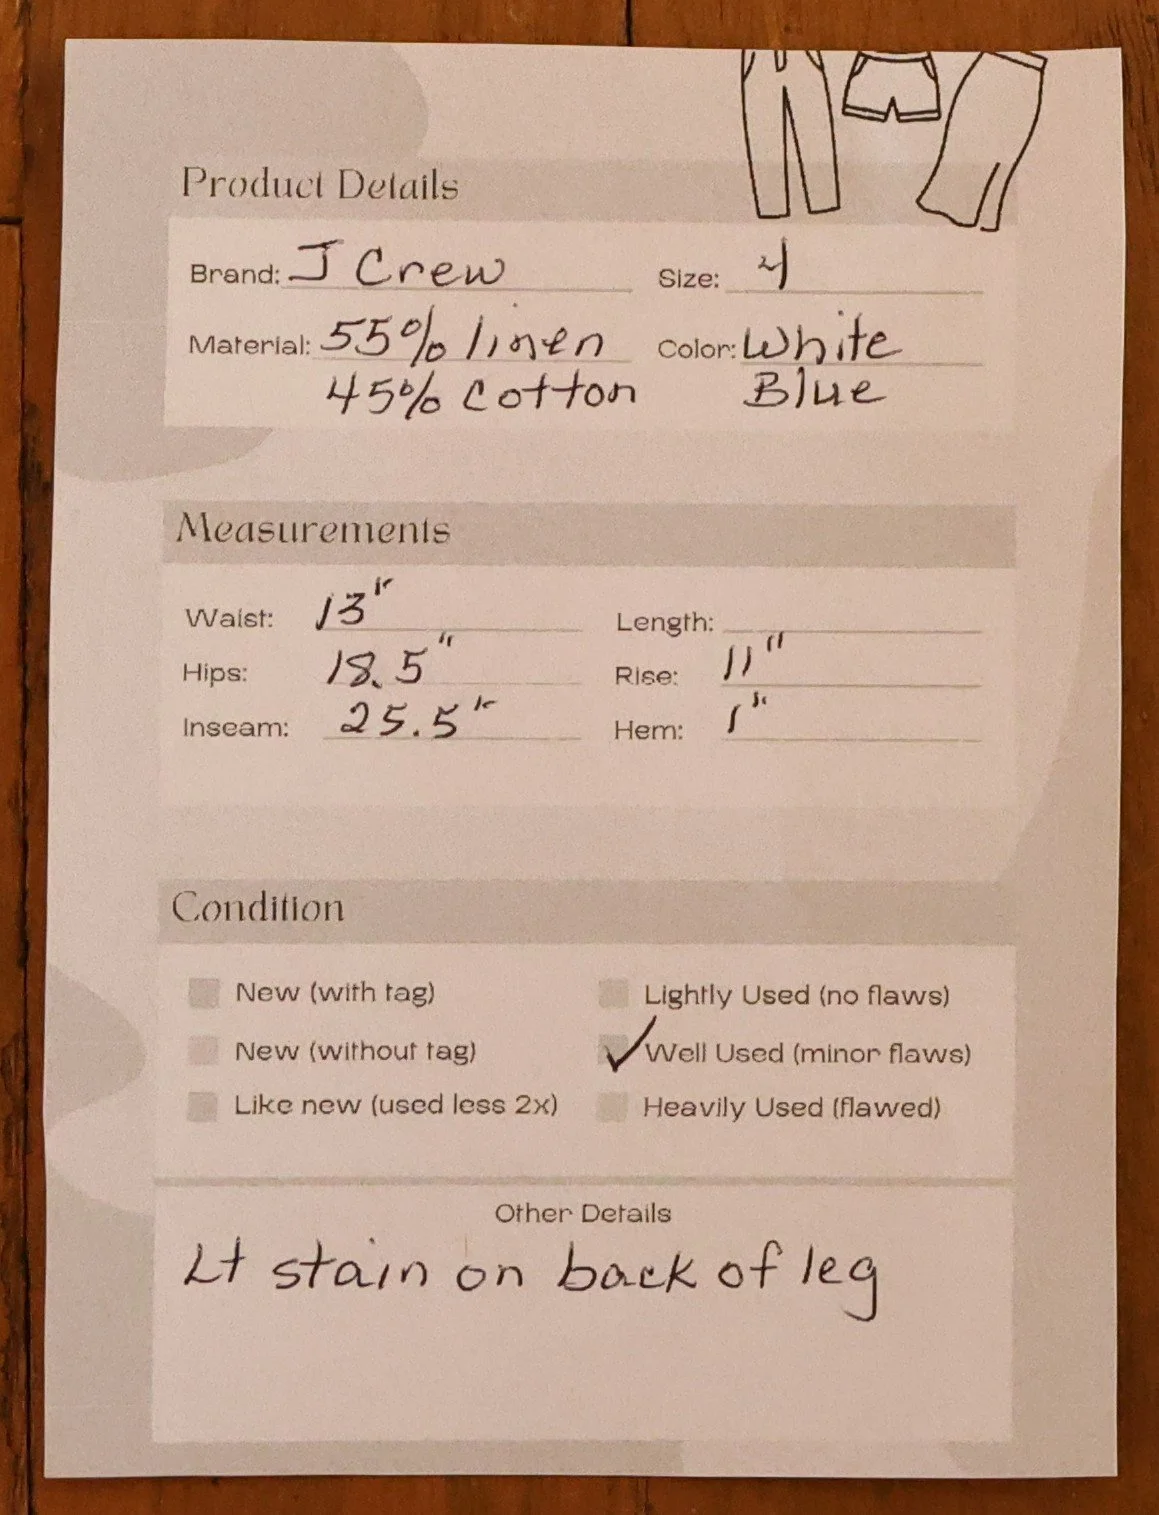 Product Details
Brand: J Crew Size: 4
Material: 55% linen Color: White
45% cotton Blue
Measurements
Waist: 13" Length:
Hips: 18.5" Rise: 11"
Inseam: 25.5" Hem: 1"
Condition
New (with tag) Lightly Used (no flaws)
New (without tag) Well Used (minor flaws)
Like new (used less 2x) Heavily Used (flawed)
Other Details
Lt stain on back of leg